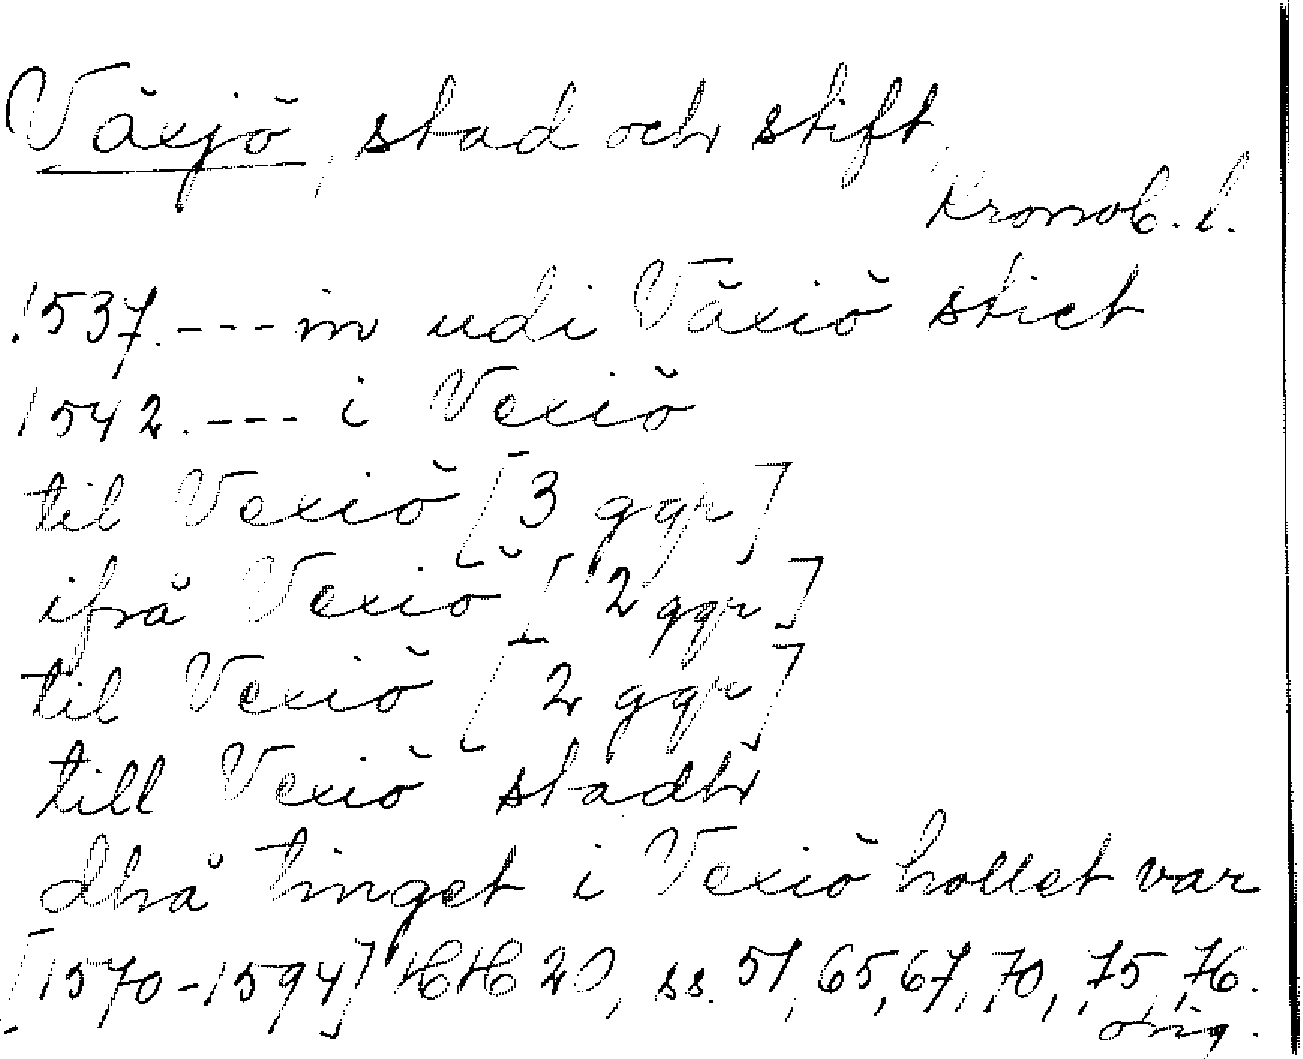 Växjö, stad och stift,
Kronob. l.
1537. --- in udi Växiö stict
1542. --- i Vexiö
til Vexiö [3 ggr]
ifrå Vexiö [2 ggr]
til Vexiö [2 ggr]
till Vexiö stadh
dhå tinget i Vexiö hollet var
[1570-1594] HH 20, ss. 51, 65, 67, 70, 75, 76.
orig.